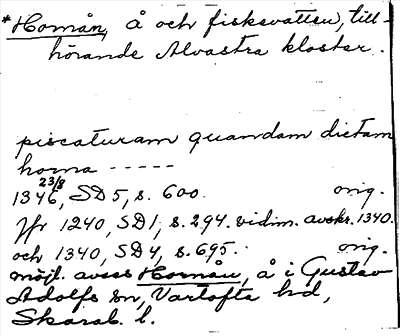 *Homån, å och fiskevatten, till-
hörande Alvastra kloster.
piscaturam quandam dictam
horna -----
1346 23/8, SD 5, s. 600. orig.
Jfr 1240, SD 1, s. 294. vidim. avskr. 1340.
och 1340, SD 4, s. 695. orig.
möjl. avses Hornån, å i Gustav
Adolfs sn, Vartofta hd,
Skarab. l.